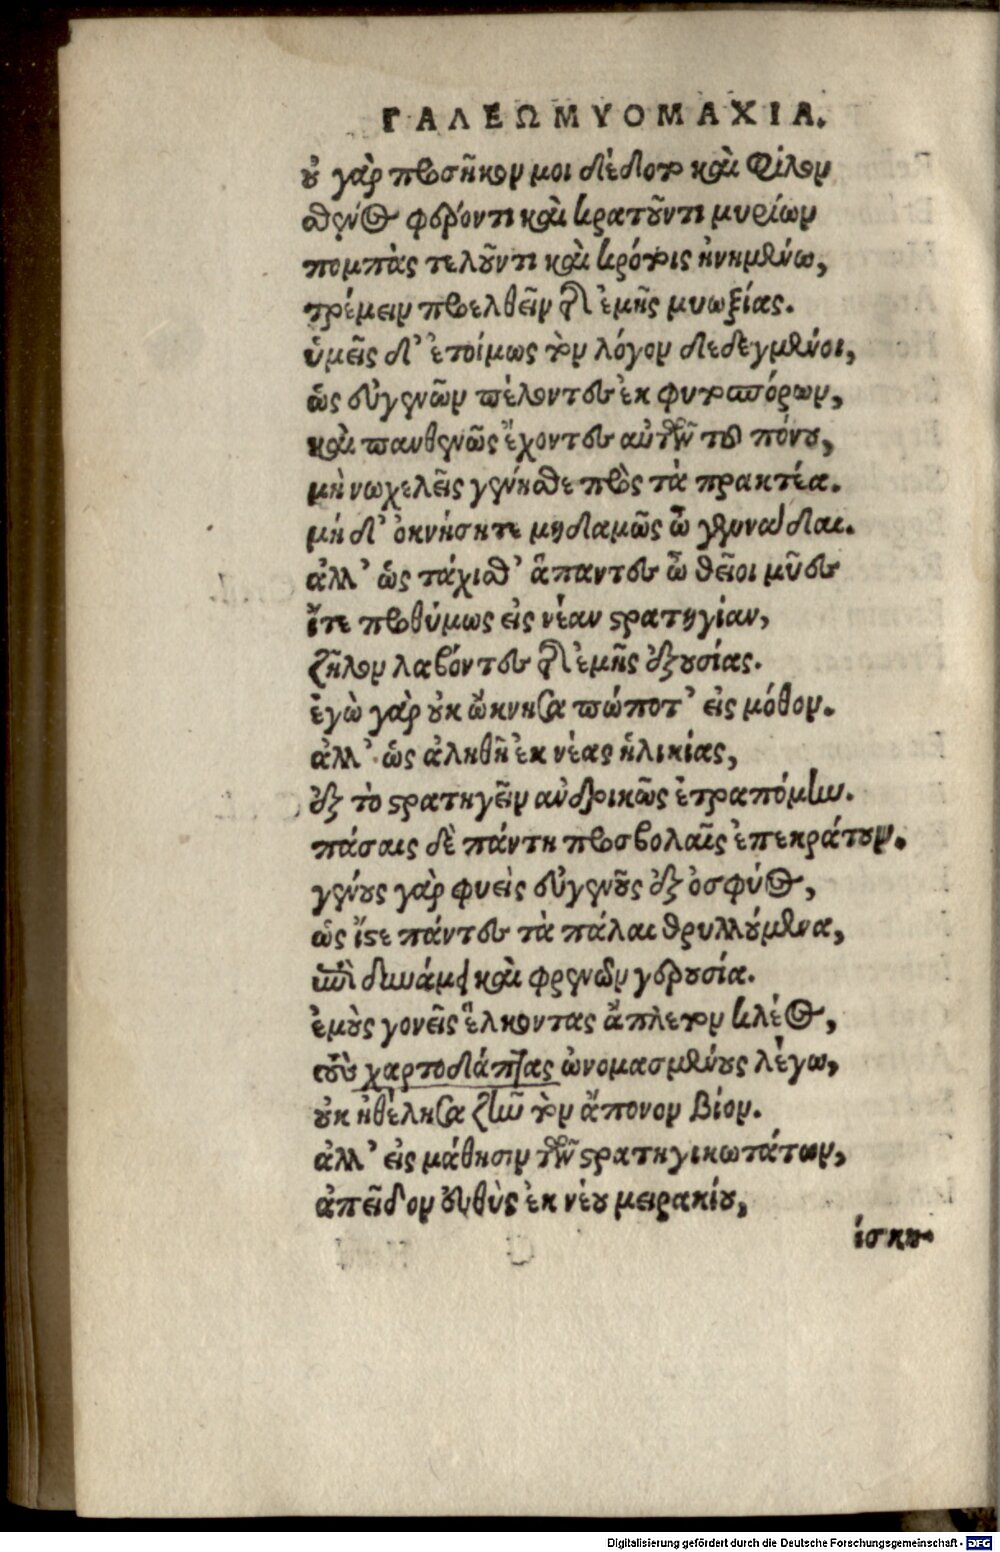 ΓΑΛΕΩΜΥΟΜΑΧΙΑ.
οὐ γὰρ προσῆκόν μοι δέδοται καὶ φίλον
σθένος φέροντι καὶ κρατοῦντι μυρίων
πομπὰς τελοῦντι καὶ κρότοις ἠνημένω,
τρέμειν προελθεῖν τῆς ἐμῆς μυωξίας.
ὑμεῖς δ' ἑτοίμως τὸν λόγον δεδεγμένοι,
ὡς συγγενῶν πέλοντες ἐκ φυτοσπόρων,
καὶ πανθενῶς ἔχοντες αὐτῶν τοῦ πόνου,
μὴ νωχελεῖς γένησθε πρὸς τὰ πρακτέα.
μή δ' ὀκνήσητε μηδαμῶς ὦ γεννάδαι.
ἀλλ' ὡς τάχισθ' ἅπαντες ὦ θεῖοι μῦες
ἴτε προθύμως εἰς νέαν στρατηγίαν,
ζῆλον λαβόντες τῆς ἐμῆς ἐξουσίας.
ἐγὼ γὰρ οὐκ ὤκνησα πώποτ' εἰς μόθον.
ἀλλ' ὡς ἀληθῆ ἐκ νέας ἡλικίας,
ἐξ τὸ στρατηγεῖν ἀνδρικῶς ἐτραπόμην.
πάσαις δὲ πάντη προσβολαῖς ἐπεκράτουν.
γένους γὰρ φυεὶς εὐγενοῦς ἐξ ὀσφύος,
ὡς ἴστε πάντες τὰ πάλαι θρυλλούμενα,
ἐπὶ δυνάμει καὶ φρενῶν γερουσία.
ἐμοὺς γονεῖς ἕλκοντας ἄπλετον κλέος,
τοὺς χαρτοδάπτας ὠνομασμένους λέγω,
οὐκ ἠθέλησα ζῆν τὸν ἄπονον βίον.
ἀλλ' εἰς μάθησιν τῶν στρατηγικωτάτων,
ἀπεῖδον εὐθὺς ἐκ νέου μειρακίου,
ἰσκη-
Digitalisierung gefördert durch die Deutsche Forschungsgemeinschaft - DFG